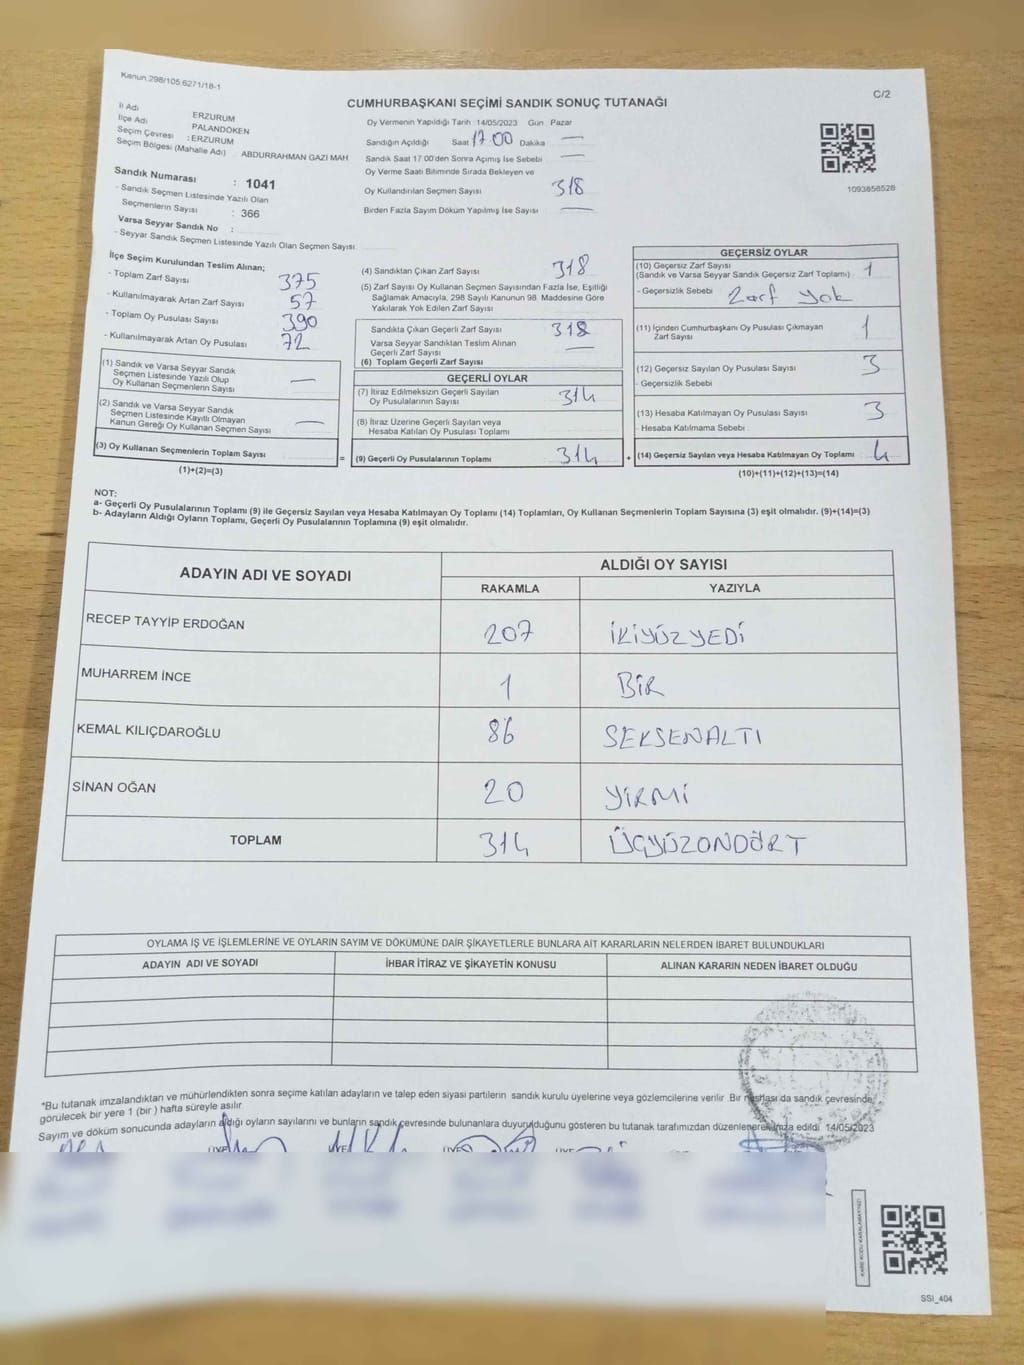 Kanun.298/105.6271/18-1
C/2
CUMHURBAŞKANI SEÇİMİ SANDIK SONUÇ TUTANAĞI
İl Adı : ERZURUM
İlçe Adı PALANDÖKEN
Seçim Çevresi : ERZURUM
Seçim Bölgesi (Mahalle Adı) ABDURRAHMAN GAZİ MAH.
Sandık Numarası : 1041
- Sandık Seçmen Listesinde Yazılı Olan
Seçmenlerin Sayısı : 366
Varsa Seyyar Sandık No :
- Seyyar Sandık Seçmen Listesinde Yazılı Olan Seçmen Sayısı
Oy Vermenin Yapıldığı Tarih : 14/05/2023 Gün : Pazar
Sandığın Açıldığı Saat 17.00 Dakika —
Sandık Saat 17.00'den Sonra Açımış İse Sebebi —
Oy Verme Saati Bitiminde Sırada Bekleyen ve
Oy Kullandırılan Seçmen Sayısı 318
Birden Fazla Sayım Döküm Yapılmış İse Sayısı —
1093858528
İlçe Seçim Kurulundan Teslim Alınan;
- Toplam Zarf Sayısı 375
- Kullanılmayarak Artan Zarf Sayısı 57
- Toplam Oy Pusulası Sayısı 390
- Kullanılmayarak Artan Oy Pusulası 72
(1) Sandık ve Varsa Seyyar Sandık
Seçmen Listesinde Yazılı Olup
Oy Kullanan Seçmenlerin Sayısı —
(2) Sandık ve Varsa Seyyar Sandık
Seçmen Listesinde Kayıtlı Olmayan
Kanun Gereği Oy Kullanan Seçmen Sayısı —
(3) Oy Kullanan Seçmenlerin Toplam Sayısı
(1)+(2)=(3)
(4) Sandıktan Çıkan Zarf Sayısı 318
(5) Zarf Sayısı Oy Kullanan Seçmen Sayısından Fazla İse, Eşitliği
Sağlamak Amacıyla, 298 Sayılı Kanunun 98. Maddesine Göre
Yakılarak Yok Edilen Zarf Sayısı
Sandıkta Çıkan Geçerli Zarf Sayısı 318
Varsa Seyyar Sandıktan Teslim Alınan
Geçerli Zarf Sayısı —
(6) Toplam Geçerli Zarf Sayısı
GEÇERLİ OYLAR
(7) İtiraz Edilmeksizin Geçerli Sayılan
Oy Pusulalarının Sayısı 314
(8) İtiraz Üzerine Geçerli Sayılan veya
Hesaba Katılan Oy Pusulası Toplamı
= (9) Geçerli Oy Pusulalarının Toplamı 314 +
GEÇERSİZ OYLAR
(10) Geçersiz Zarf Sayısı
(Sandık ve Varsa Seyyar Sandık Geçersiz Zarf Toplamı) 1
- Geçersizlik Sebebi Zarf yok
(11) İçinden Cumhurbaşkanı Oy Pusulası Çıkmayan
Zarf Sayısı 1
(12) Geçersiz Sayılan Oy Pusulası Sayısı 3
- Geçersizlik Sebebi
(13) Hesaba Katılmayan Oy Pusulası Sayısı 3
- Hesaba Katılmama Sebebi
(14) Geçersiz Sayılan veya Hesaba Katılmayan Oy Toplamı 4
(10)+(11)+(12)+(13)=(14)
NOT:
a- Geçerli Oy Pusulalarının Toplamı (9) ile Geçersiz Sayılan veya Hesaba Katılmayan Oy Toplamı (14) Toplamları, Oy Kullanan Seçmenlerin Toplam Sayısına (3) eşit olmalıdır. (9)+(14)=(3)
b- Adayların Aldığı Oyların Toplamı, Geçerli Oy Pusulalarının Toplamına (9) eşit olmalıdır.
ADAYIN ADI VE SOYADI
ALDIĞI OY SAYISI
RAKAMLA YAZIYLA
RECEP TAYYİP ERDOĞAN 207 İKİYÜZYEDİ
MUHARREM İNCE 1 BİR
KEMAL KILIÇDAROĞLU 86 SEKSENALTI
SİNAN OĞAN 20 YİRMİ
TOPLAM 314 ÜÇYÜZONDÖRT
OYLAMA İŞ VE İŞLEMLERİNE VE OYLARIN SAYIM VE DÖKÜMÜNE DAİR ŞİKAYETLERLE BUNLARA AİT KARARLARIN NELERDEN İBARET BULUNDUKLARI
ADAYIN ADI VE SOYADI İHBAR İTİRAZ VE ŞİKAYETİN KONUSU ALINAN KARARIN NEDEN İBARET OLDUĞU
*Bu tutanak imzalandıktan ve mühürlendikten sonra seçime katılan adayların ve talep eden siyasi partilerin sandık kurulu üyelerine veya gözlemcilerine verilir. Bir nüshası da sandık çevresinde
görülecek bir yere 1 (bir) hafta süreyle asılır.
Sayım ve döküm sonucunda adayların aldığı oyların sayılarını ve bunların sandık çevresinde bulunanlara duyurulduğunu gösteren bu tutanak tarafımızdan düzenlenerek imza edildi. 14/05/2023
ÜYE ÜYE ÜYE ÜYE
SSİ_404